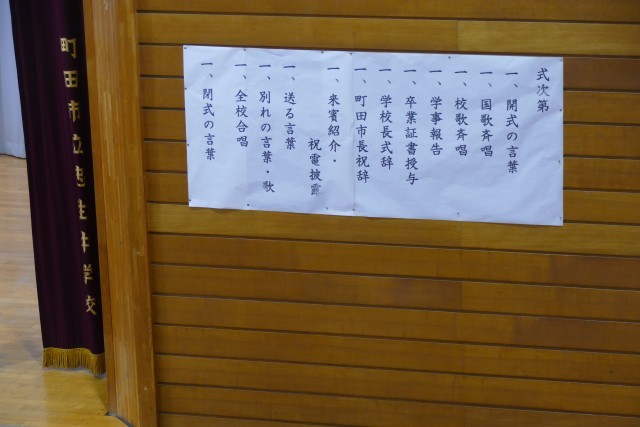 式次第
一、開式の言葉
一、国歌斉唱
一、校歌斉唱
一、学事報告
一、卒業証書授与
一、学校長式辞
一、町田市長祝辞
一、来賓紹介・
祝電披露
一、送る言葉
一、別れの言葉・歌
一、全校合唱
一、閉式の言葉
町田市立忠生中学校